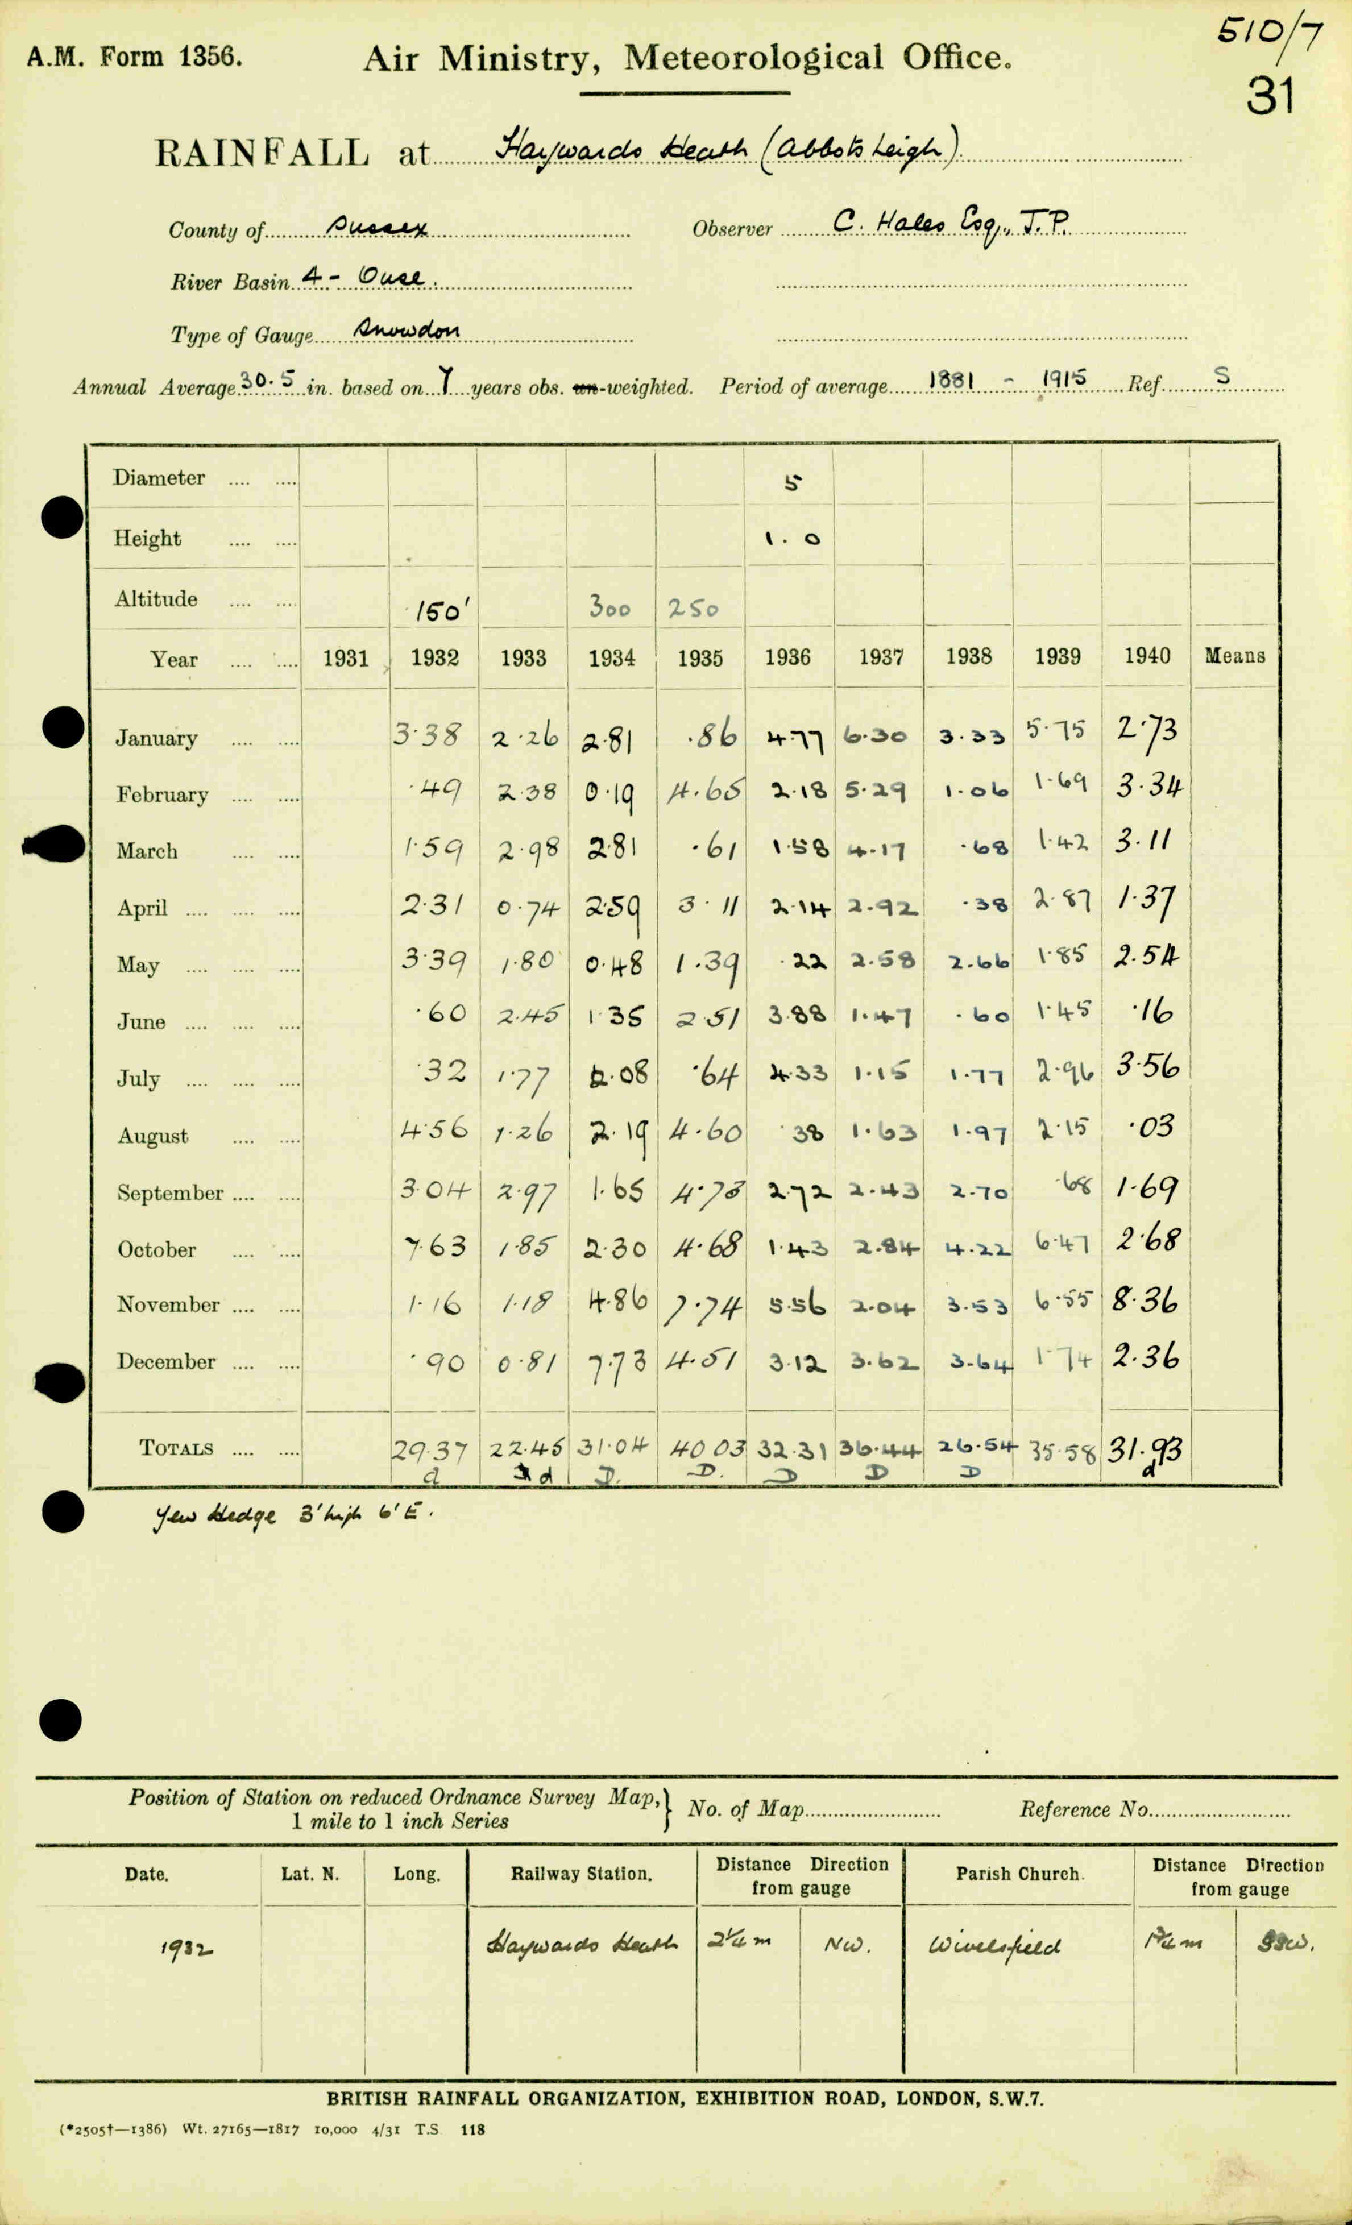 510/7
A.M. Form 1356. Air Ministry, Meteorological Office.
31
RAINFALL at Haywards Heath (Abbots Leigh).
County of Sussex Observer C. Hales Esq., J.P.
River Basin 4 - Ouse.
Type of Gauge Snowdon
Annual Average 30.5 in. based on 7 years obs. un-weighted. Period of average 1881 - 1915 Ref. S
Diameter .... .... 5
Height .... .... 1.0
Altitude .... .... 150' 300 250
Year .... .... 1931 1932 1933 1934 1935 1936 1937 1938 1939 1940 Means
January .... .... 3.38 2.26 2.81 .86 4.77 6.30 3.33 5.75 2.73
February .... .... .49 2.38 0.19 4.65 2.18 5.29 1.06 1.69 3.34
March .... .... 1.59 2.98 2.81 .61 1.58 4.17 .68 1.42 3.11
April .... .... .... 2.31 0.74 2.59 3.11 2.14 2.92 .38 2.87 1.37
May .... .... .... 3.39 1.80 0.48 1.39 .22 2.58 2.66 1.85 2.54
June .... .... .... .60 2.45 1.35 2.51 3.88 1.47 .60 1.45 .16
July .... .... .... .32 1.77 2.08 .64 4.33 1.15 1.77 2.96 3.56
August .... .... 4.56 1.26 2.19 4.60 .38 1.63 1.97 2.15 .03
September .... .... 3.04 2.97 1.65 4.73 2.72 2.43 2.70 .68 1.69
October .... .... 7.63 1.85 2.30 4.68 1.43 2.84 4.22 6.47 2.68
November .... .... 1.16 1.18 4.86 7.74 5.56 2.04 3.53 6.55 8.36
December .... .... .90 0.81 7.73 4.51 3.12 3.62 3.64 1.74 2.36
TOTALS .... .... 29.37 22.45 31.04 40.03 32.31 36.44 26.54 35.58 31.93
d d D. D. D D D d
Yew Hedge 3' high 6' E.
Position of Station on reduced Ordnance Survey Map, } No. of Map Reference No.
1 mile to 1 inch Series
Date. Lat. N. Long. Railway Station. Distance Direction from gauge Parish Church. Distance Direction from gauge
1932 Haywards Heath 2¼ m NW. Wivelsfield 1¾ m SSW.
BRITISH RAINFALL ORGANIZATION, EXHIBITION ROAD, LONDON, S.W.7.
(*2505†—1386) Wt. 27165—1817 10,000 4/31 T.S. 118